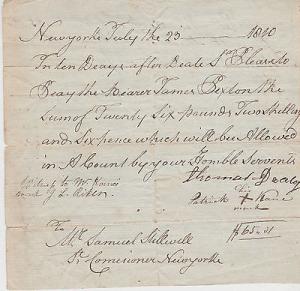 Newyorke July the 23 1810
In ten Deays after Deate Sr Please to
Peay the Bearer James Sexton the
Sum of Twenty Six pounds Two Shillings
and Sixpence which will bee Allowed
in ACount by your Homble Servents
Thomas Dealy
Patrick his + mark Kane
$65.31
To
Mr. Samuel Stillwell
St Comisioner Newyorke